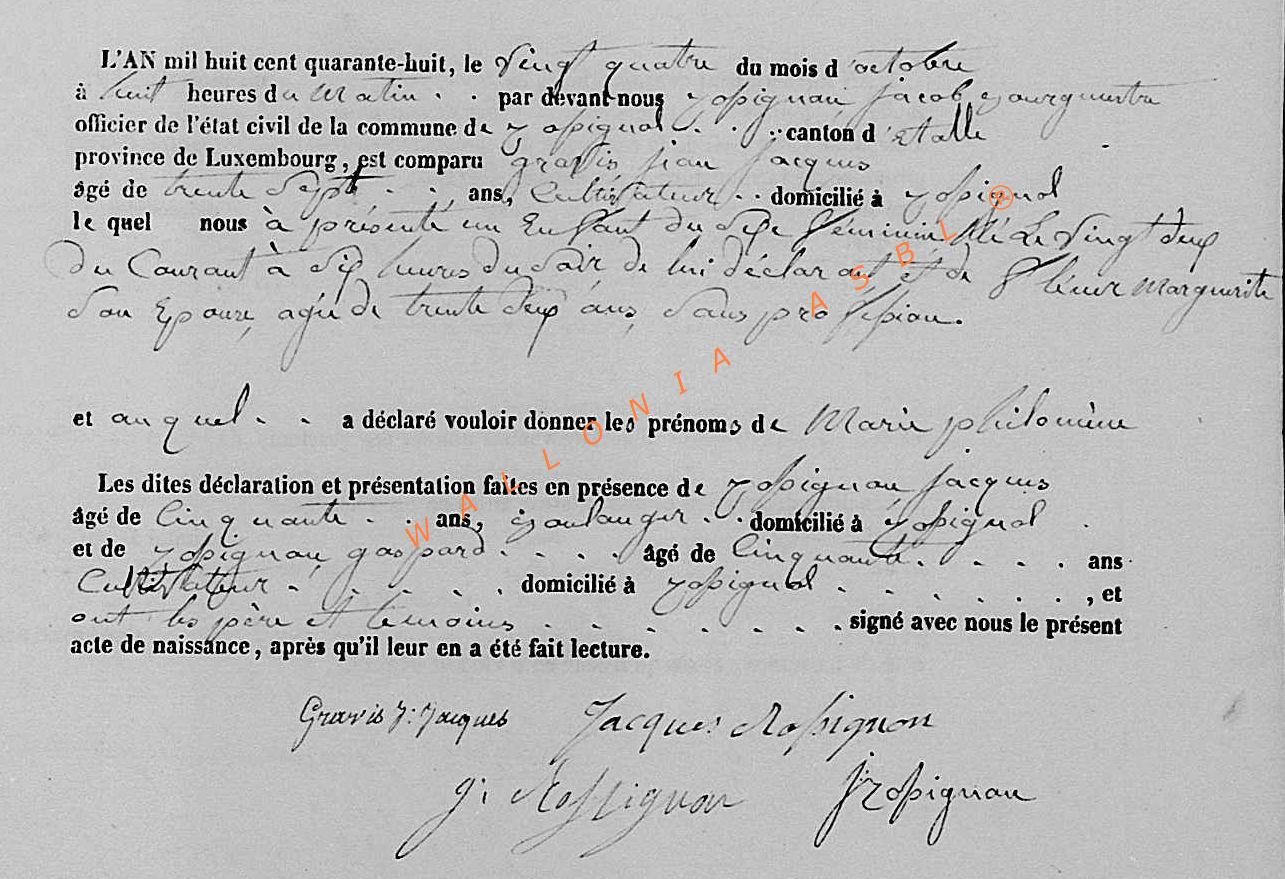 L'AN mil huit cent quarante-huit, le Vingt quatre du mois d'octobre
à huit heures du Matin . . par devant nous rossignon jacob Bourgmestre
officier de l'état civil de la commune de rossignol . . . canton d'etalle
province de Luxembourg, est comparu gravis jean jacques
âgé de trente Sept . . , ans, Cultivateur . . domicilié à rossignol
le quel nous à présenté un Enfant du Sexe féminin Né Le Vingt deux
du Courant à Six heures du Soir de lui déclarant et de fleur Marguerite
Son Epouse, agée de trente deux ans, Sans profession.
et auquel . . a déclaré vouloir donner les prénoms de Marie philomène
Les dites déclaration et présentation faites en présence de rossignon jacques
âgé de Cinquante . . ans, Boulanger . . domicilié à rossignol .
et de rossignon gaspard . . . . âgé de Cinquante . . . . ans
Cultivateur . . . . . domicilié à rossignol . . . . . . , et
ont les père et témoins . . . . . . . signé avec nous le présent
acte de naissance, après qu'il leur en a été fait lecture.
Gravis J: Jacques Jacques Rossignon
g: Rossignon J rossignon
WALLONIA ASBL ®